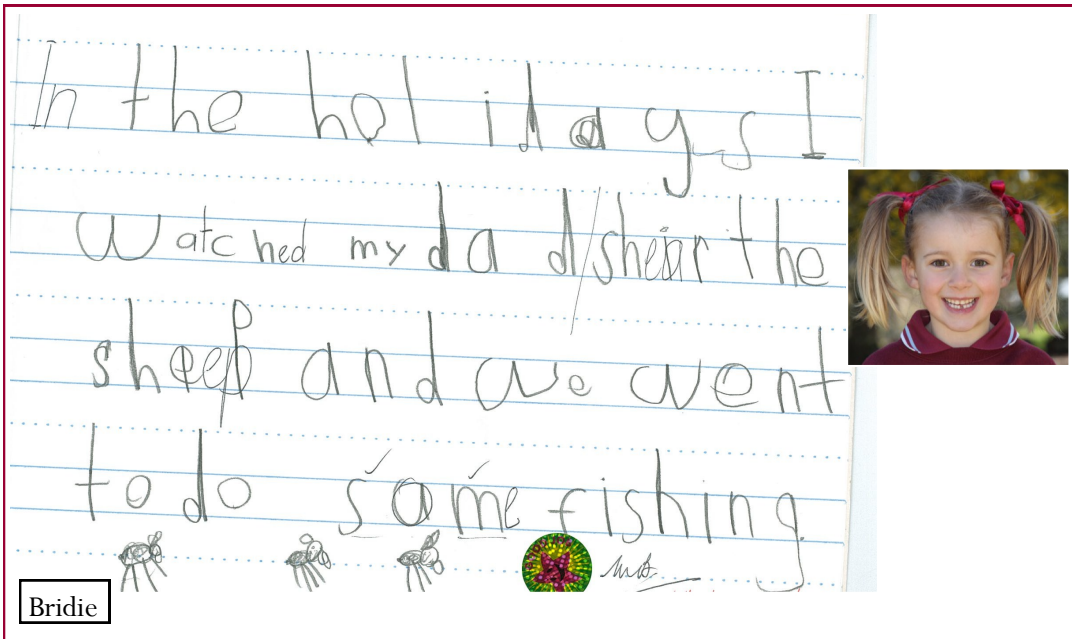 In the holidays I
watched my dad/shear the
sheep and we went
to do same fishing
Bridie